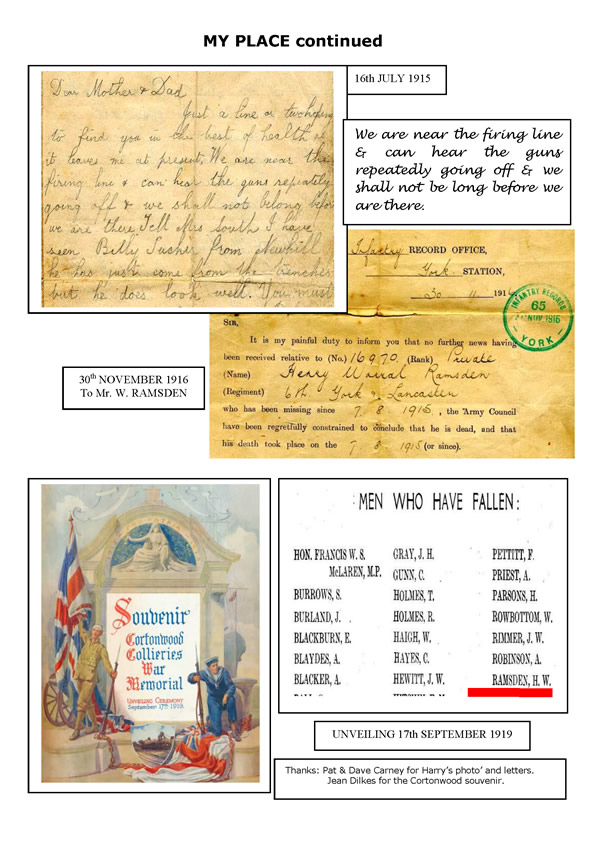 MY PLACE continued
Dear Mother & Dad
Just a line or two hoping
to find you in the best of health as
it leaves me at present. We are near the
firing line & can hear the guns repeatedly
going off & we shall not be long before
we are there. Tell Mrs South I have
seen Billy Tucker from Newhill
he has just come from the trenches
but he does look well. You must
16th JULY 1915
We are near the firing line
& can hear the guns
repeatedly going off & we
shall not be long before we
are there.
Infantry RECORD OFFICE,
York STATION,
30 11 191
INFANTRY RECORDS
65
NOV 1916
YORK
SIR,
It is my painful duty to inform you that no further news having
been received relative to (No.) 16970 (Rank) Private
(Name) Henry Worral Ramsden
(Regiment) 6th York & Lancaster
who has been missing since 7. 8 1915, the Army Council
have been regretfully constrained to conclude that he is dead, and that
his death took place on the 7 8 1915 (or since).
30th NOVEMBER 1916
To Mr. W. RAMSDEN
Souvenir
Cortonwood
Collieries
War
Memorial
UNVEILING CEREMONY
September 17th 1919.
MEN WHO HAVE FALLEN:
HON. FRANCIS W. S.
McLAREN, M.P.
BURROWS, S.
BURLAND, J.
BLACKBURN, E.
BLAYDES, A.
BLACKER, A.
GRAY, J. H.
GUNN, C.
HOLMES, T.
HOLMES, R.
HAIGH, W.
HAYES, C.
HEWITT, J. W.
PETTITT, F.
PRIEST, A.
PARSONS, H.
ROWBOTTOM, W.
RIMMER, J. W.
ROBINSON, A.
RAMSDEN, H. W.
UNVEILING 17th SEPTEMBER 1919
Thanks: Pat & Dave Carney for Harry's photo' and letters.
Jean Dilkes for the Cortonwood souvenir.